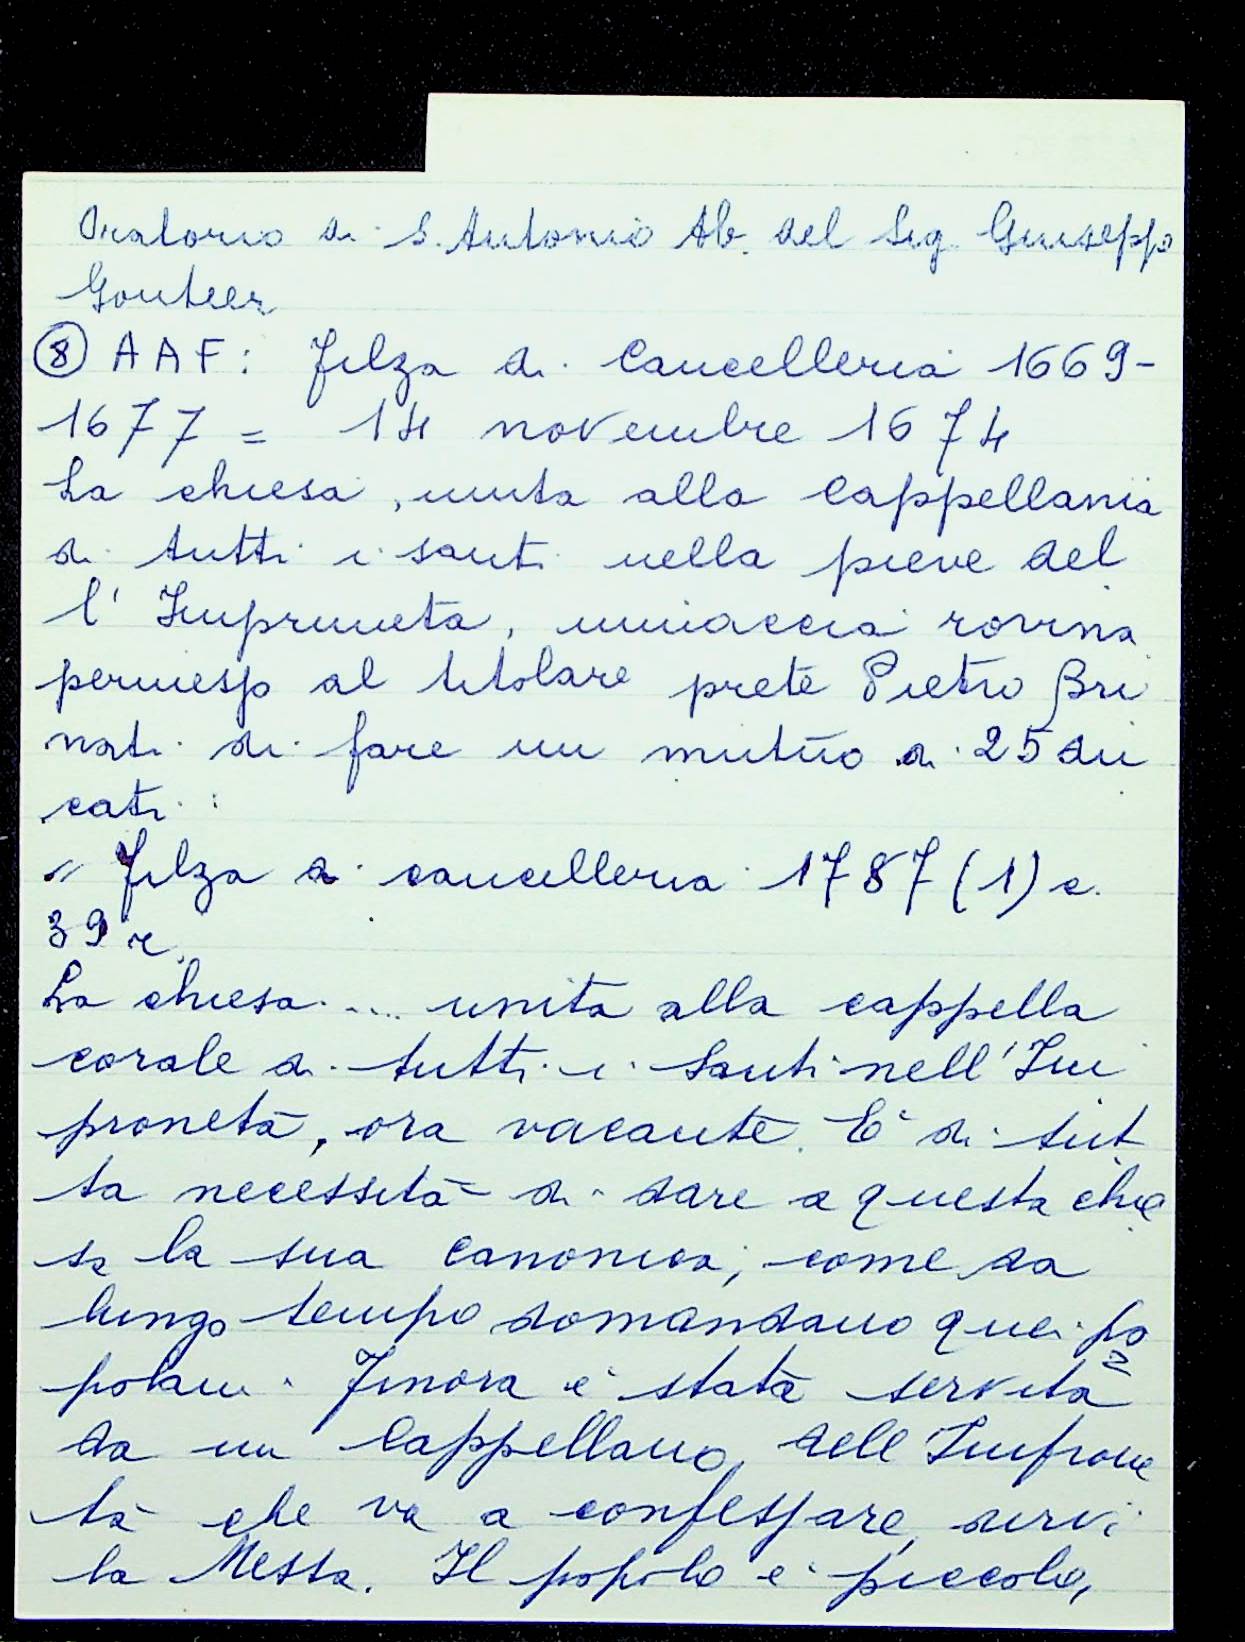 Oratorio di S. Antonio Ab. del Sig. Giuseppe
Gonteer
⑧ AAF: Filza di Cancelleria 1669-
1677 = 14 novembre 1674
La chiesa, unita alla Cappellania
di tutti i santi nella pieve del
l'Impruneta, minaccia rovina
permesso al titolare prete Pietro Bri
nati di fare un mutuo di 25 du
cati.
" Filza di cancelleria 1787 (1) c.
39 r.
La chiesa .... unita alla cappella
corale di tutti i Santi nell'Im
proneta, ora vacante. E' di tut
ta necessità di dare a questa chie
sa la sua canonica, come da
lungo tempo domandano quei po
polani. Finora è stata servita
da un Cappellano dell'Imprune
ta che va a confessare, dirvi
la Messa. Il popolo è piccolo,